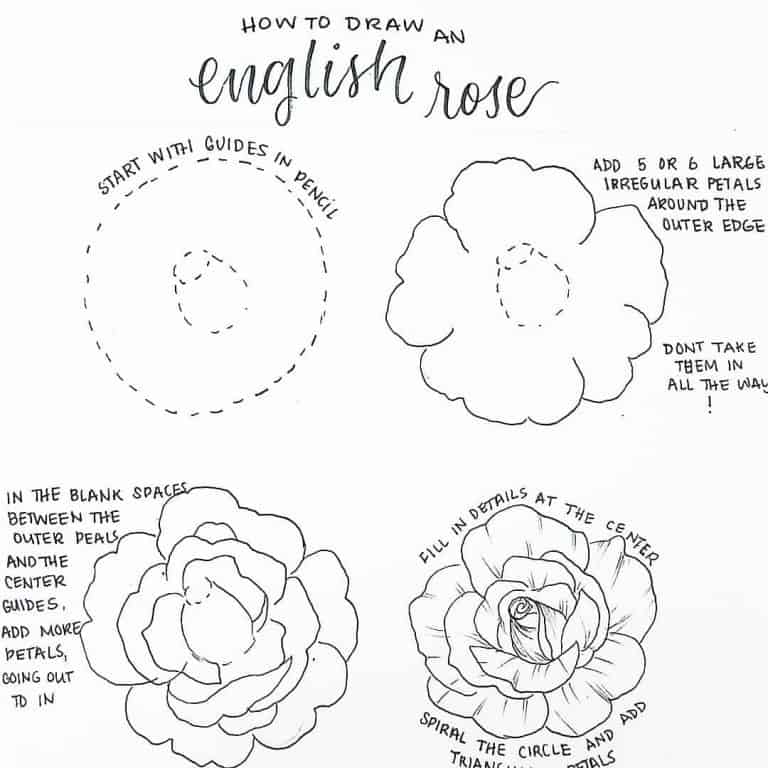 HOW TO DRAW AN
english rose
START WITH GUIDES IN PENCIL
ADD 5 OR 6 LARGE
IRREGULAR PETALS
AROUND THE
OUTER EDGE
DONT TAKE
THEM IN
ALL THE WAY
!
IN THE BLANK SPACES
BETWEEN THE
OUTER PEALS
AND THE
CENTER
GUIDES,
ADD MORE
PETALS,
GOING OUT
TO IN
FILL IN DETAILS AT THE CENTER
SPIRAL THE CIRCLE AND ADD
PETALS